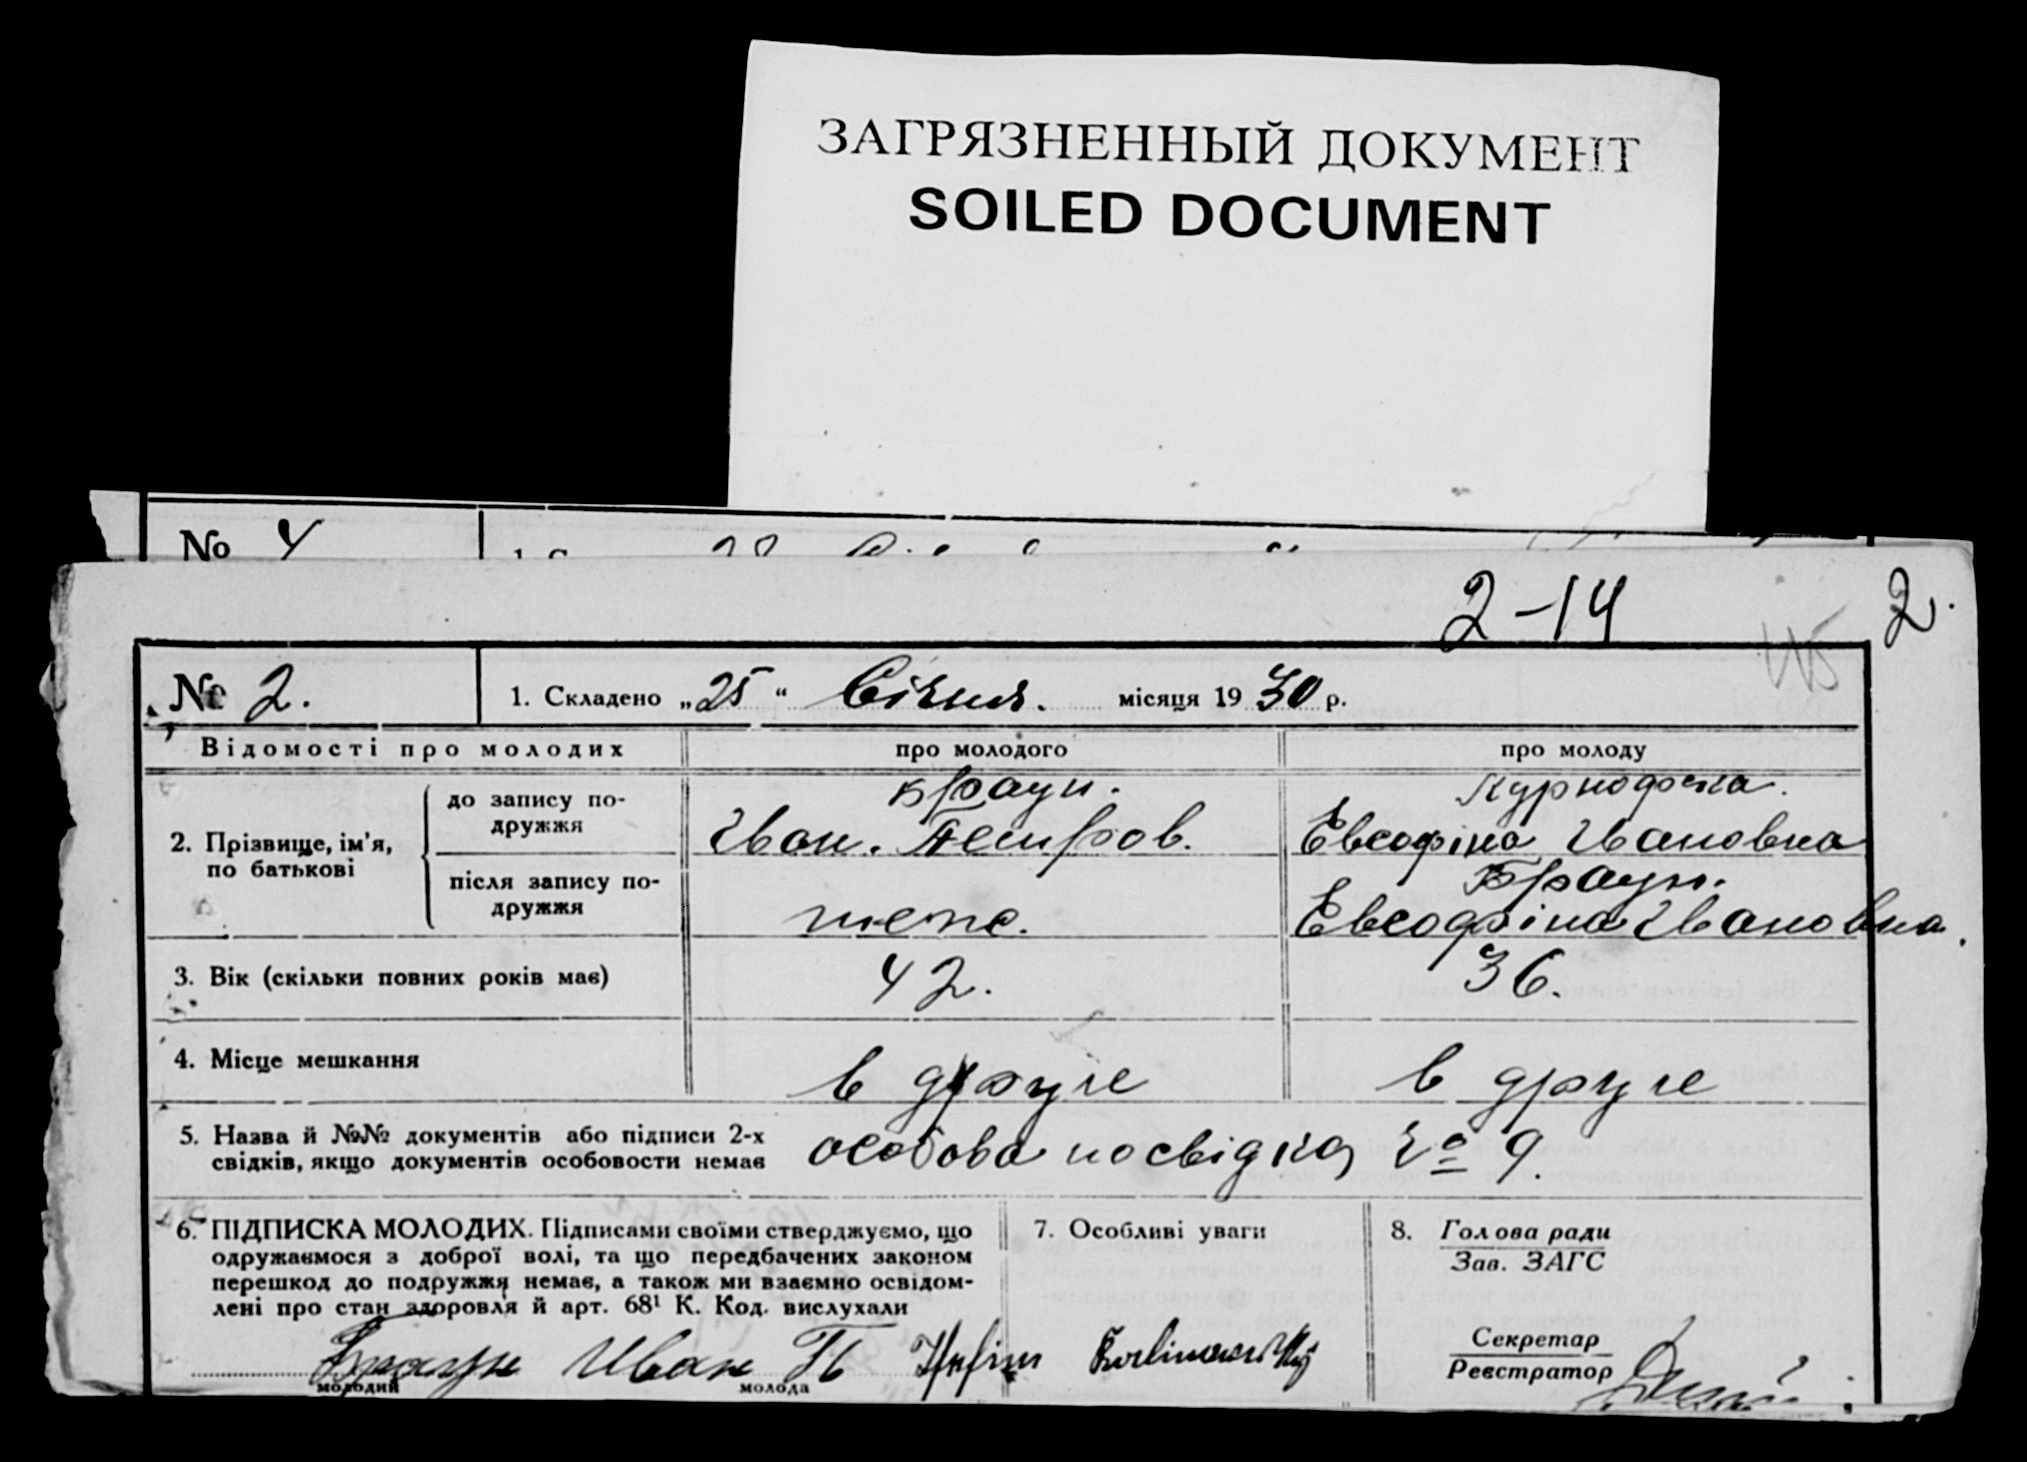 ЗАГРЯЗНЕННЫЙ ДОКУМЕНТ
SOILED DOCUMENT
№ 4
2-14
2.
№ 2.
1. Складено „25“ Січня. місяця 1930 р.
Відомості про молодих
про молодого
про молоду
2. Прізвище, ім'я,
по батькові
до запису по-
дружжя
Браун.
Иван. Петров.
Евсофіна Ивановна
після запису по-
дружжя
теж.
Браун.
Евсофіна Ивановна.
3. Вік (скільки повних років має)
42.
36.
4. Місце мешкання
в друге
в друге
5. Назва й №№ документів або підписи 2-х
свідків, якщо документів особовости немає
особова посвідка № 9.
6. ПІДПИСКА МОЛОДИХ. Підписами своїми стверджуємо, що
одружаємося з доброї волі, та що передбачених законом
перешкод до подружжя немає, а також ми взаємно освідом-
лені про стан здоровля й арт. 68¹ К. Код. вислухали
Браун Иван П
молодий
молода
7. Особливі уваги
8. Голова ради
Зав. ЗАГС
Секретар
Реєстратор